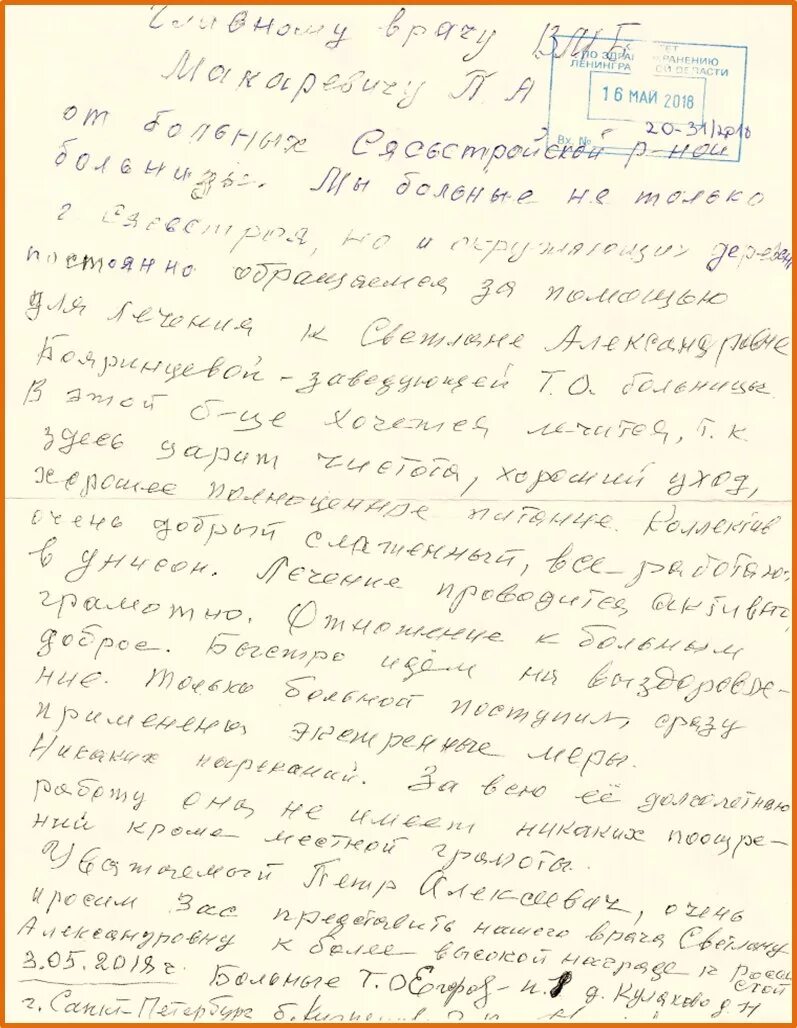 Главному врачу ВМБ
Макаревичу П А
ПО ЗДРАВООХРАНЕНИЮ
ЛЕНИНГРАДСКОЙ ОБЛАСТИ
16 МАЙ 2018
Вх. № 20-31/2018
от больных Сясьстройской р-ной
больницы. Мы больные не только
г Сясьстроя, но и окружающих деревень
постоянно обращаемся за помощью
для лечения к Светлане Александровне
Бояринцевой - заведующей Т.О. больницы.
В этой б-це хочется лечится, т.к
здесь царит чистота, хороший уход,
хорошее полноценное питание. Коллектив
очень добрый слаженный, все работают
в унисон. Лечение проводится активно,
грамотно. Отношение к больным
доброе. Быстро идём на выздоровле-
ние. Только больной поступил, сразу
применены экстренные меры.
Никаких нареканий. За всю её долголетнюю
работу она не имеет никаких поощре-
ний кроме местной грамоты.
Уважаемый Петр Алексеевич, очень
просим Вас представить нашего врача Светлану
Александровну к более высокой награде
3.05.2018 г. Больные Т.О Егоров д. Кулаково
г. Санкт-Петербург